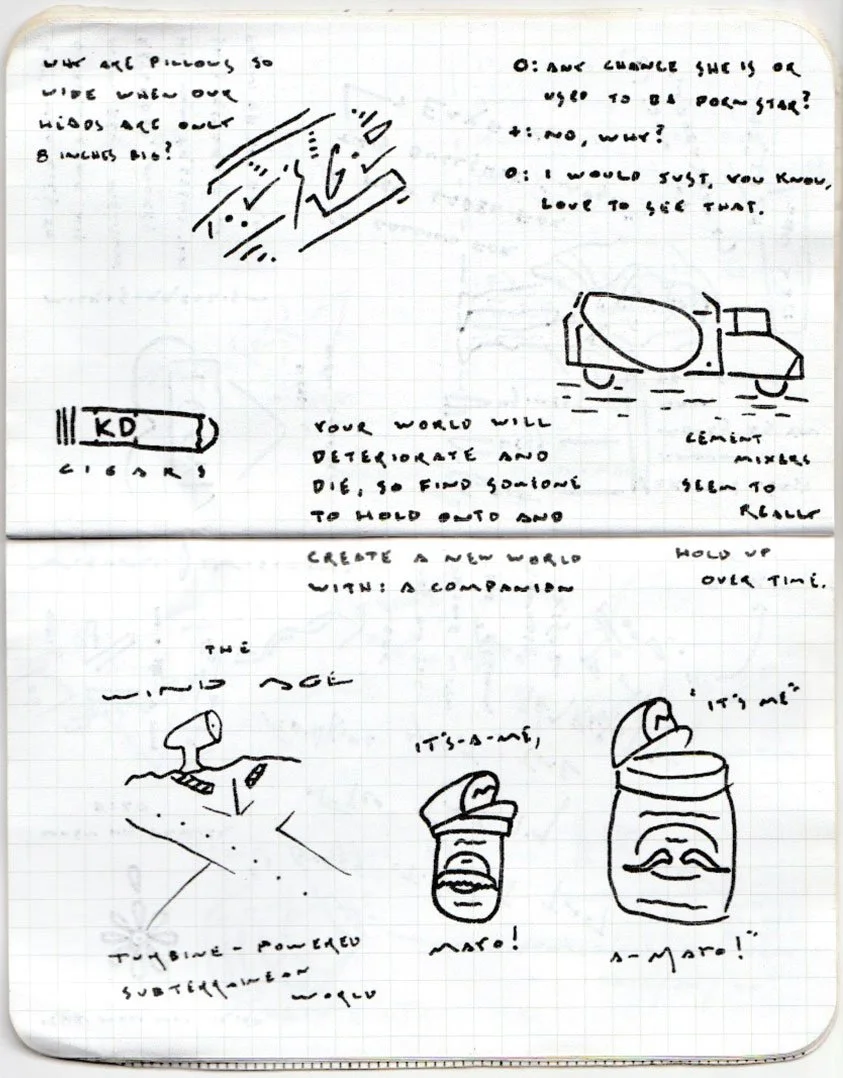 WHY ARE PILLOWS SO
WIDE WHEN OUR
HEADS ARE ONLY
8 INCHES BIG?
O: ANY CHANCE SHE IS OR
USED TO BE PORN STAR?
+: NO, WHY?
O: I WOULD JUST, YOU KNOW,
LOVE TO SEE THAT.
KD
CIGARS
YOUR WORLD WILL
DETERIORATE AND
DIE, SO FIND SOMEONE
TO HOLD ONTO AND
CREATE A NEW WORLD
WITH: A COMPANION
CEMENT
MIXERS
SEEM TO
REALLY
HOLD UP
OVER TIME.
THE
WIND AGE
TURBINE-POWERED
SUBTERRANEAN
WORLD
IT'S-A-ME,
M
MAYO!
"IT'S ME"
M
A-MAYO!"